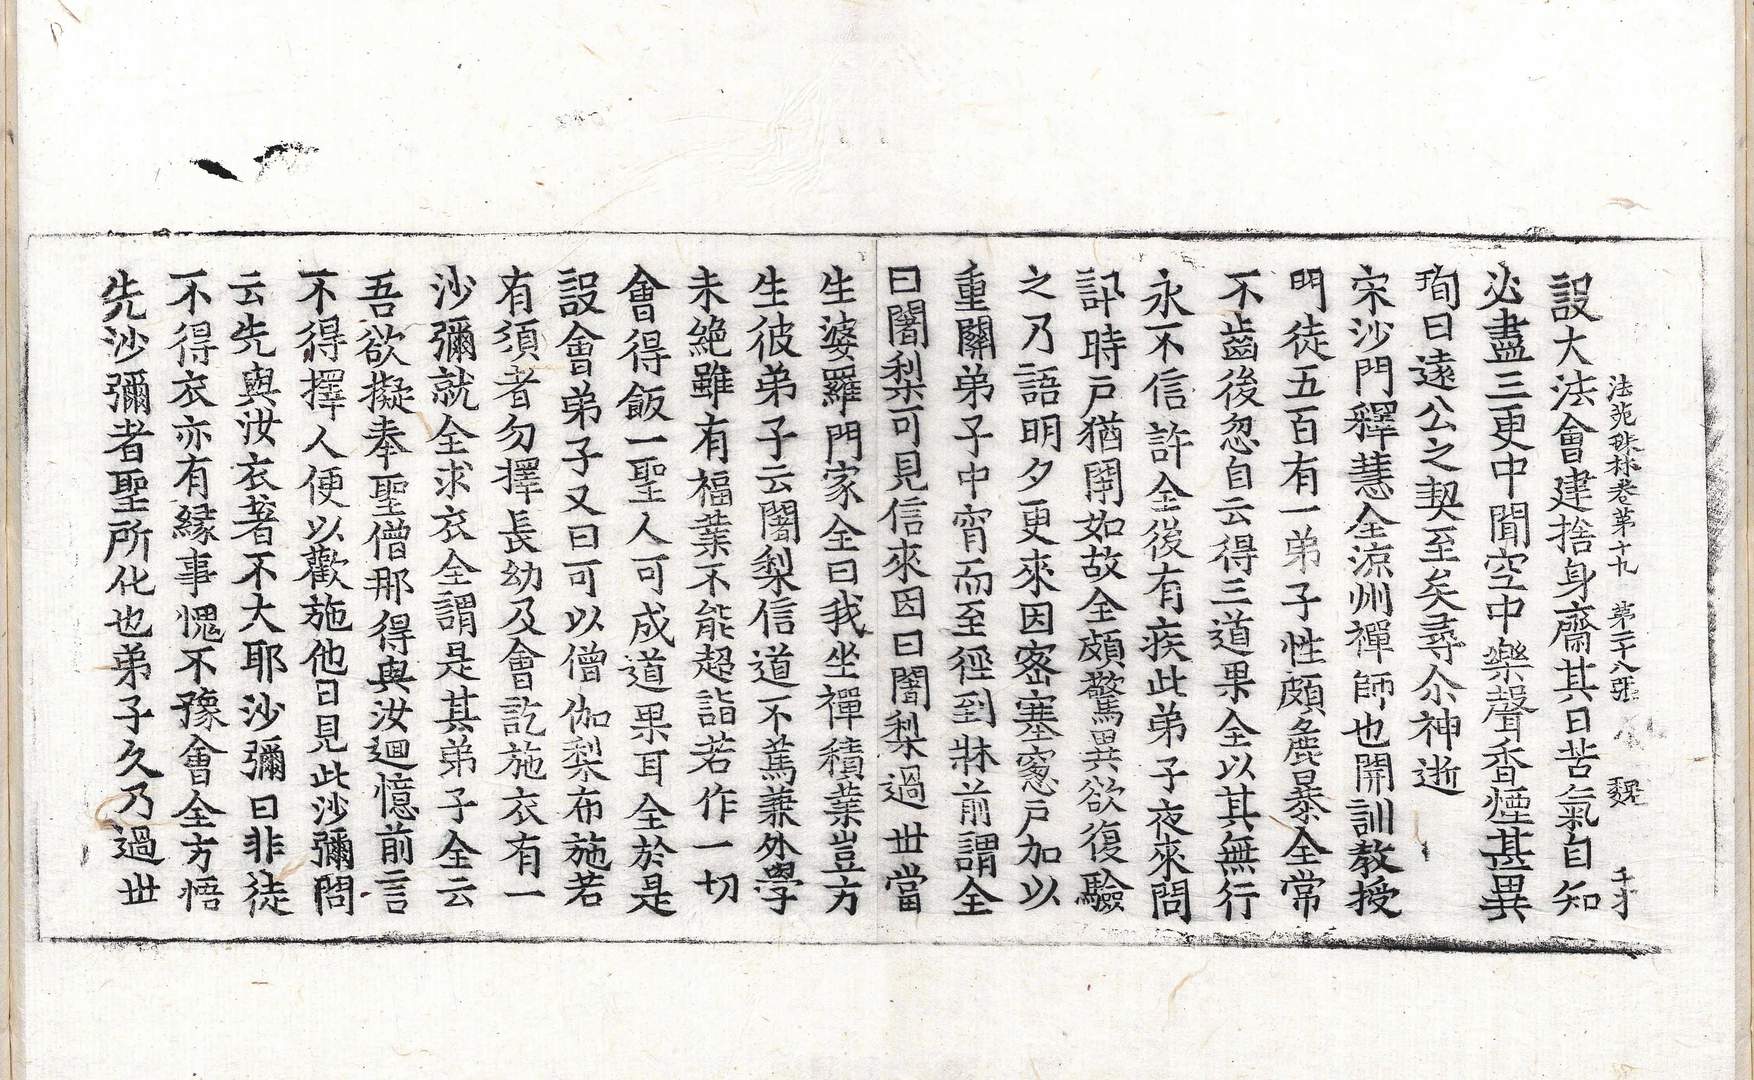 法苑珠林卷第十九　第二十八張　魏
設大法會建捨身齋其日苦氣自知
必盡三更中聞空中樂聲香煙甚異
珣曰遠公之契至矣尋尒神逝
宋沙門釋慧全涼州禪師也開訓教授
門徒五百有一弟子性頗麁暴全常
不齒後忽自云得三道果全以其無行
永不信許全後有疾此弟子夜來問
訊時戶猶閉如故全頗驚異欲復驗
之乃語明夕更來因密塞窻戶加以
重關弟子中宵而至徑到牀前謂全
曰闍梨可見信來因曰闍梨過世當
生婆羅門家全曰我坐禪積業豈方
生彼弟子云闍梨信道不篤兼外學
未絕雖有福業不能超詣若作一切
會得飯一聖人可成道果耳全於是
設會弟子又曰可以僧伽梨布施若
有須者勿擇長幼及會訖施衣有一
沙彌就全求衣全謂是其弟子全云
吾欲擬奉聖僧那得與汝迴憶前言
不得擇人便以歡施他日見此沙彌問
云先與汝衣著不大耶沙彌曰非徒
不得衣亦有緣事愧不豫會全方悟
先沙彌者聖所化也弟子久乃過世